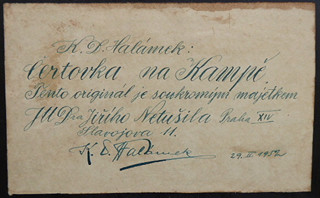 K. D. Halámek:
Čertovka na Kampě
Tento originál je soukromým majetkem
JUDra Jiřího Netušila Praha XIV
Slavojova 11.
K. D. Halámek 29. II. 1952